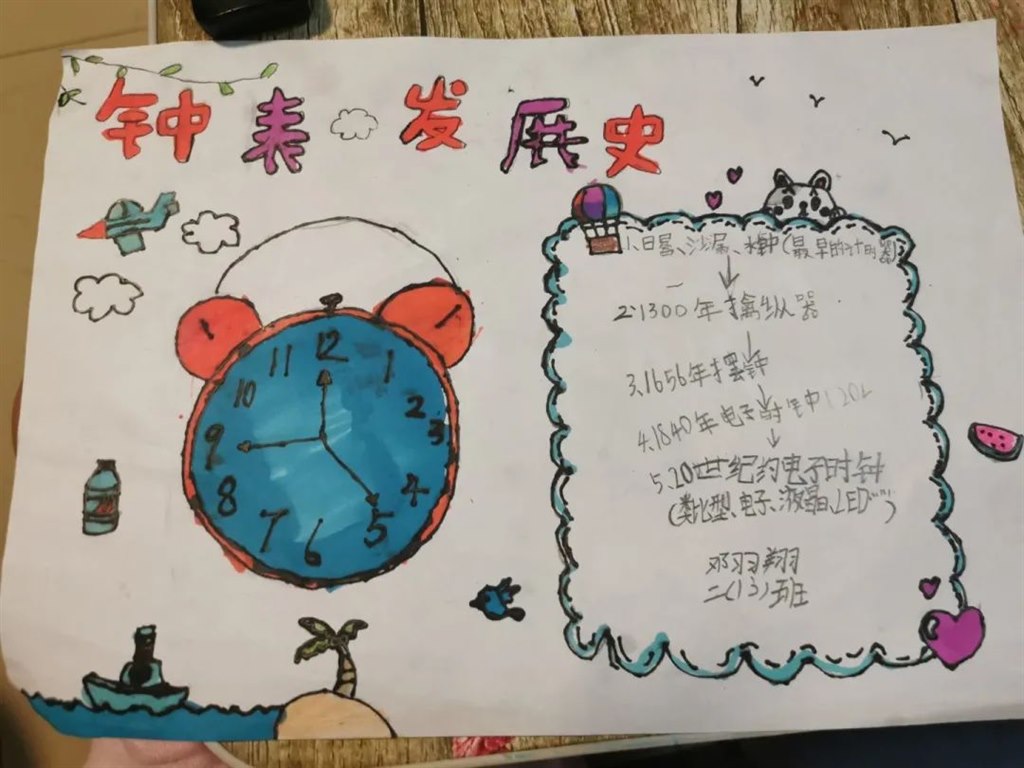 钟表发展史
12
11 1
10 2
9 3
8 4
7 5
6
1、日晷、沙漏、水钟(最早的计时器)
2.1300年擒纵器
3.1656年摆钟
4.1840年电
5.20世纪约电子时钟
(类比型、电子、液晶、LED……)
邓羽翔
二(13)班